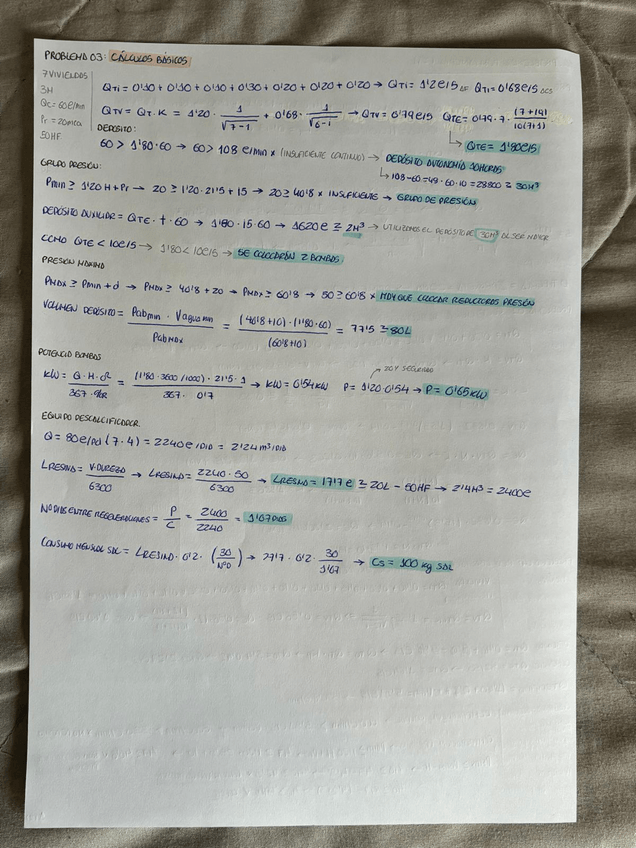 PROBLEMA 03: CÁLCULOS BÁSICOS
7 VIVIENDAS
3M
Qc = 60 l/min
Pr = 20mca
50HF
QTi = 0'10 + 0'10 + 0'10 + 0'30 + 0'20 + 0'20 + 0'20 → QTi = 1'2 l/s AF QTi = 0'68 l/s ACS
QTV = QT · K = 1'20 · 1/√(7-1) + 0'68 · 1/√(6-1) → QTV = 0'79 l/s QTE = 0'79 · 7 · (7+19)/10(7+1)
↳ QTE = 1'80 l/s
DEPÓSITO:
60 > 1'80 · 60 → 60 > 108 l/min × (INSUFICIENTE CONTINUO) → DEPÓSITO AUTONOMÍA 10HORAS
↳ 108-60=48 · 60 · 10 = 28800 ≅ 30M³
GRUPO PRESIÓN:
Pmin ≥ 1'20 H + Pr → 20 ≥ 1'20 · 21'5 + 15 → 20 ≥ 40'8 × INSUFICIENTE → GRUPO DE PRESIÓN
DEPÓSITO AUXILIAR = QTE · t · 60 → 1'80 · 15 · 60 → 1620 l ≅ 2M³ → UTILIZAMOS EL DEPÓSITO DE 30M³ AL SER MAYOR
COMO QTE < 10 l/s → 1'80 < 10 l/s → SE COLOCARÁN 2 BOMBAS
PRESIÓN MÁXIMA
PMAX ≥ Pmin + d → PMAX ≥ 40'8 + 20 → PMAX ≥ 60'8 → 50 ≥ 60'8 × HAY QUE COLOCAR REDUCTORAS PRESIÓN
VOLUMEN DEPÓSITO = Pab min · Vagua min / Pab MAX = (40'8+10) · (1'80·60) / (60'8+10) = 77'5 ≅ 80L
POTENCIA BOMBAS
KW = Q · H · d / 367 · = (1'80 · 3600/1000) · 21'5 · 1 / 367 · 0'7 → KW = 0'54KW P = 1'20 · 0'54 → P = 0'65KW
20% SEGURIDAD
EQUIPO DESCALCIFICADOR
Q = 80 l/pd (7 · 4) = 2240 l/DIA = 2'24 m³/DIA
LRESINA = V·DUREZA / 6300 → LRESINA = 2240 · 50 / 6300 → LRESINA = 17'7 l ≅ 20L - 50HF → 2'4M³ = 2400 l
Nº DIAS ENTRE REGENERACIONES = P/C = 2400/2240 = 1'07 DIAS
CONSUMO MENSUAL SAL = LRESINA · 0'2 · (30/NºD) → 17'7 · 0'2 · 30/1'07 → Cs = 100 kg SAL